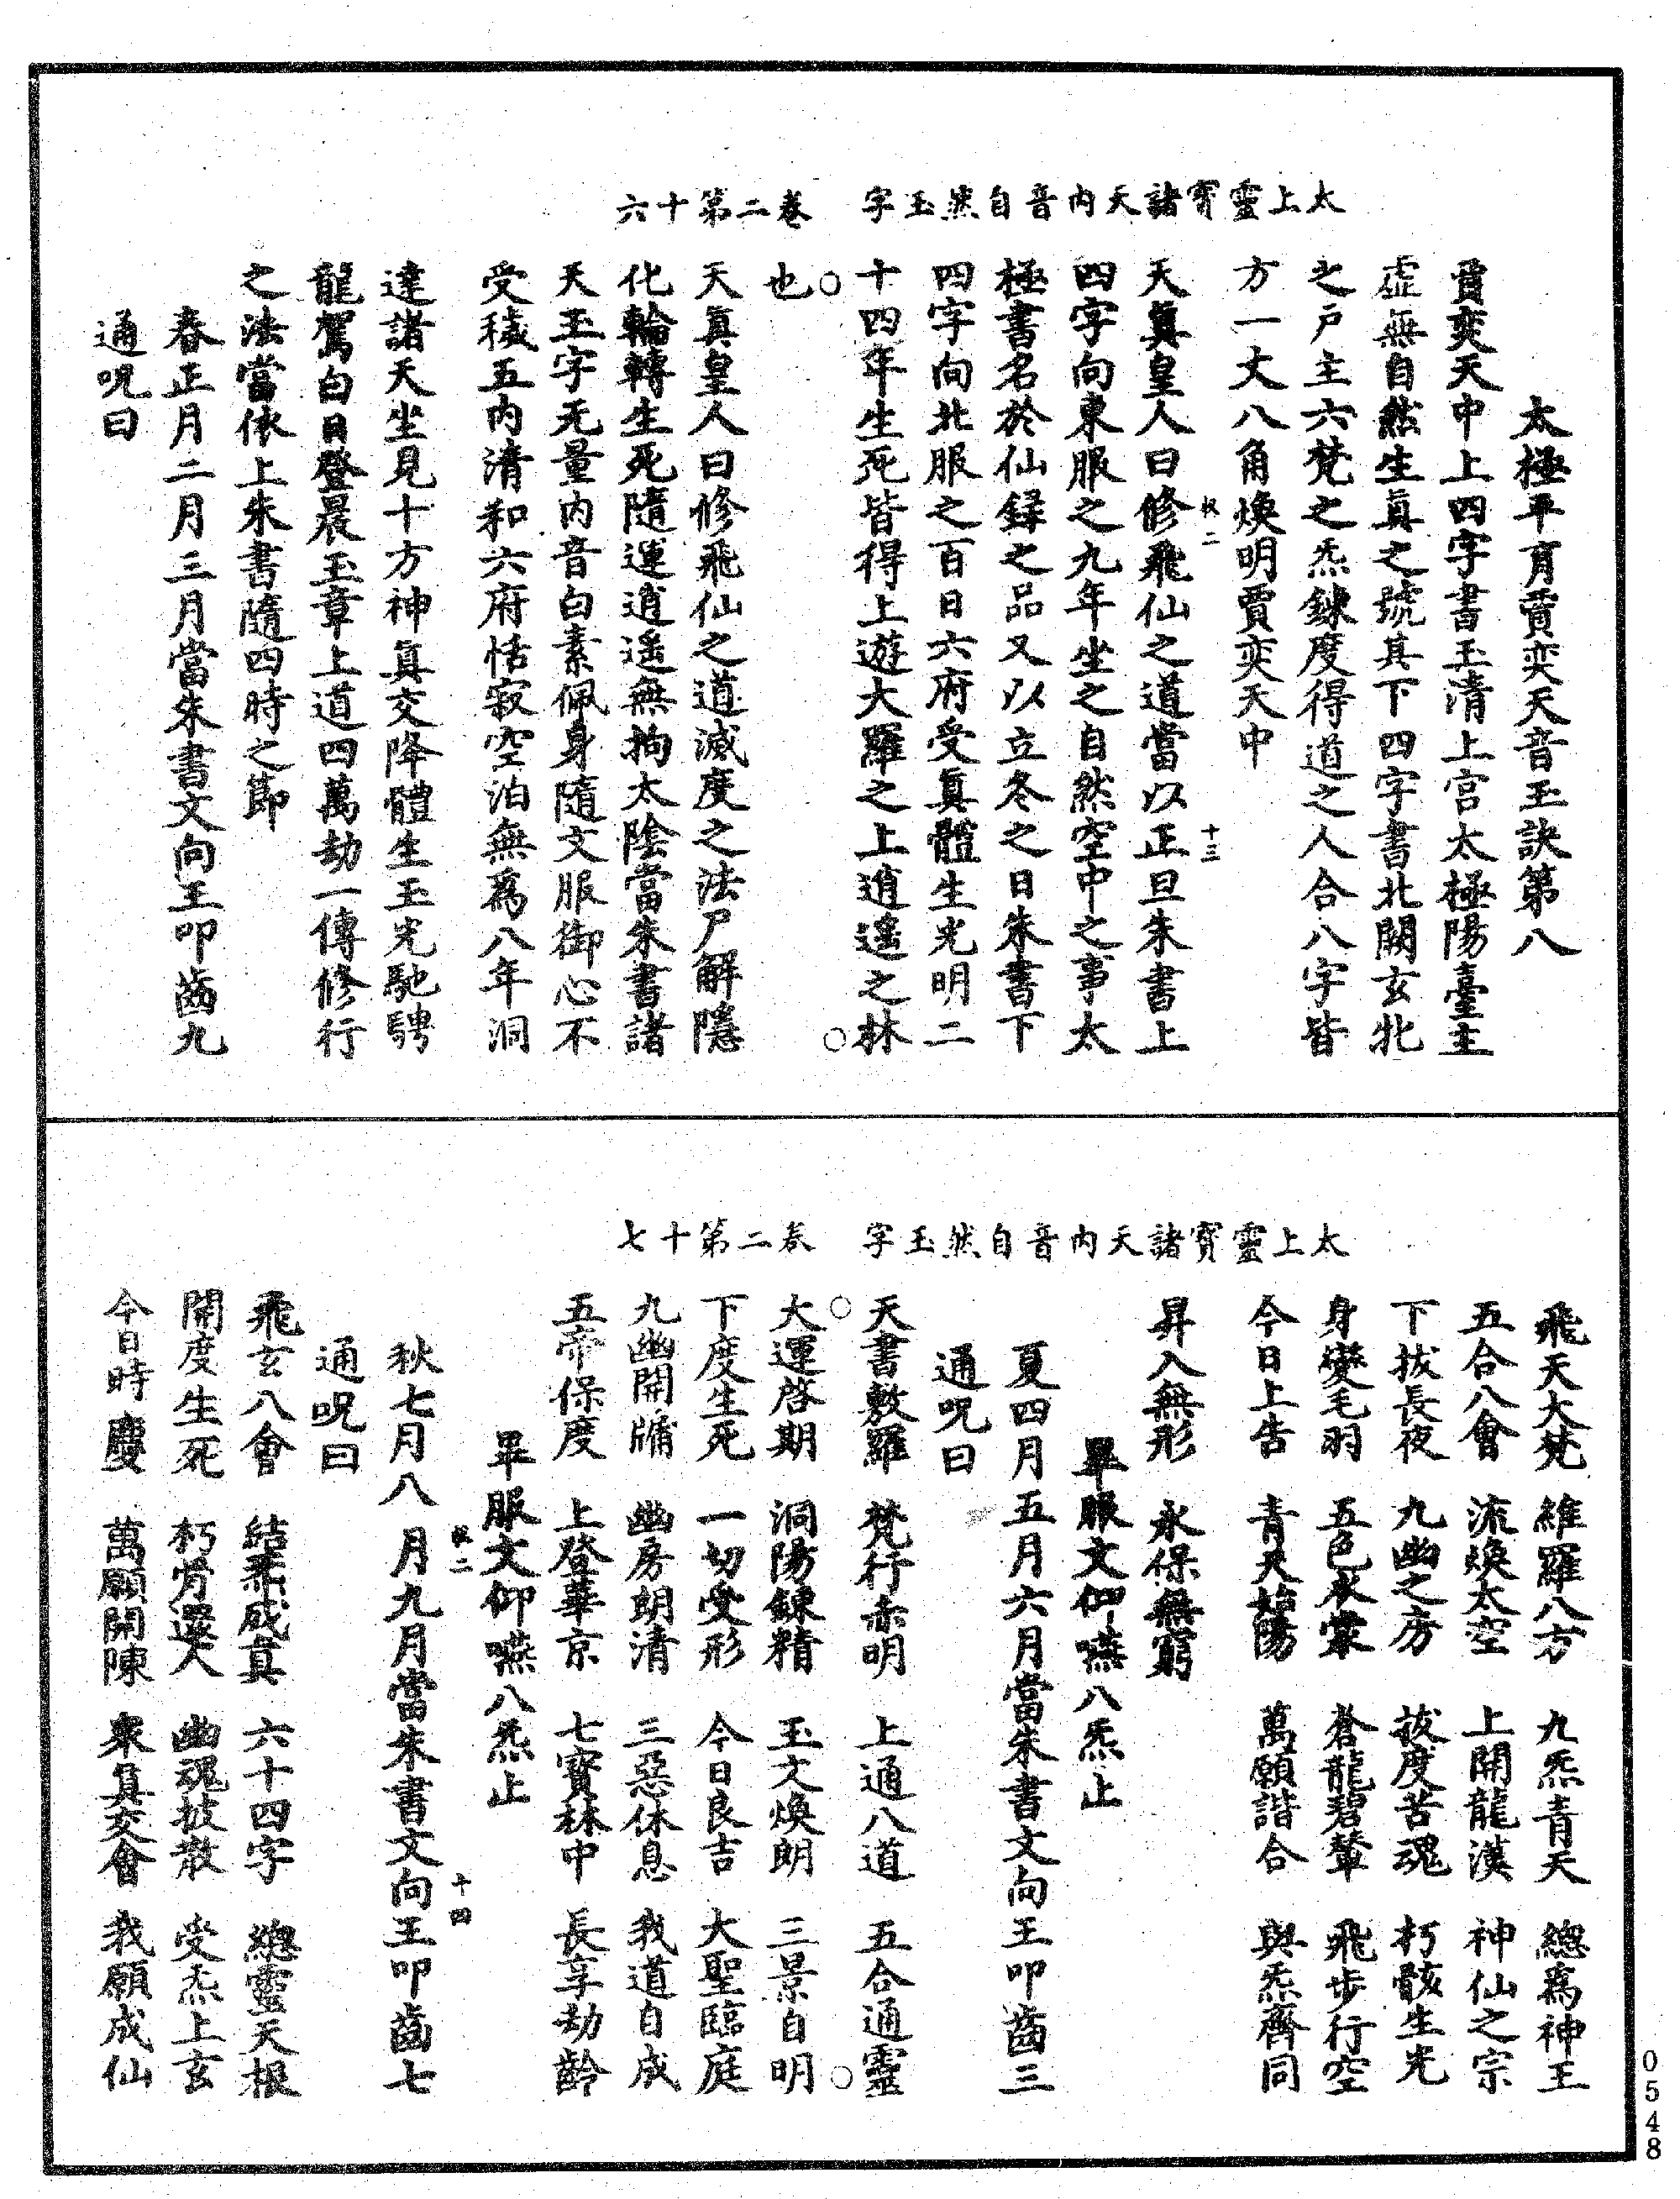 太上靈寳諸天內音自然玉字　卷二第十六
太極平育賈奕天音玉訣第八
賈奕天中上四字書玉清上宮太極陽臺主
虛無自然生真之號其下四字書北闕玄牝
之戶主六梵之炁鍊度得道之人合八字皆
方一丈八角煥明賈奕天中
天真皇人曰修飛仙之道當以正旦朱書上
四字向東服之九年坐之自然空中之事太
極書名於仙録之品又以立冬之日朱書下
四字向北服之百日六府受真體生光明二
十四年生死皆得上遊大羅之上逍遙之林
也
天真皇人曰修飛仙之道滅度之法尸解隱
化輪轉生死隨運逍遙無拘太陰當朱書諸
天玉字无量內音白素佩身隨文服御心不
受穢五內清和六府恬寂空泊無為八年洞
達諸天坐見十方神真交降體生玉光馳騁
龍駕白日登晨玉章上道四萬劫一傳修行
之法當依上朱書隨四時之節
春正月二月三月當朱書文向王叩齒九
通呪曰
太上靈寳諸天內音自然玉字　卷二第十七
飛天大梵　維羅八方　九炁青天　總為神王
五合八會　流煥太空　上開龍漢　神仙之宗
下拔長夜　九幽之房　拔度苦魂　朽骸生光
身變毛羽　五色衣裳　蒼龍碧輦　飛步行空
今日上告　青天蒍陽　萬願諧合　與炁齊同
昇入無形　永保無窮
畢服文仰嚥八炁止
夏四月五月六月當朱書文向王叩齒三
通呪曰
天書敷羅　梵行赤明　上通八道　五合通靈
大運啓期　洞陽鍊精　玉文煥朗　三景自明
下度生死　一切受形　今日良吉　大聖臨庭
九幽開牖　幽房朗清　三惡休息　我道自成
五帝保度　上登華京　七寶林中　長享劫齡
畢服文仰嚥八炁止
秋七月八月九月當朱書文向王叩齒七
通呪曰
飛玄八會　結炁成真　六十四字　總靈天根
開度生死　朽骨還人　幽魂披散　受炁上玄
今日時慶　萬願開陳　衆真交會　我願成仙
二
十三
二
十四
0548